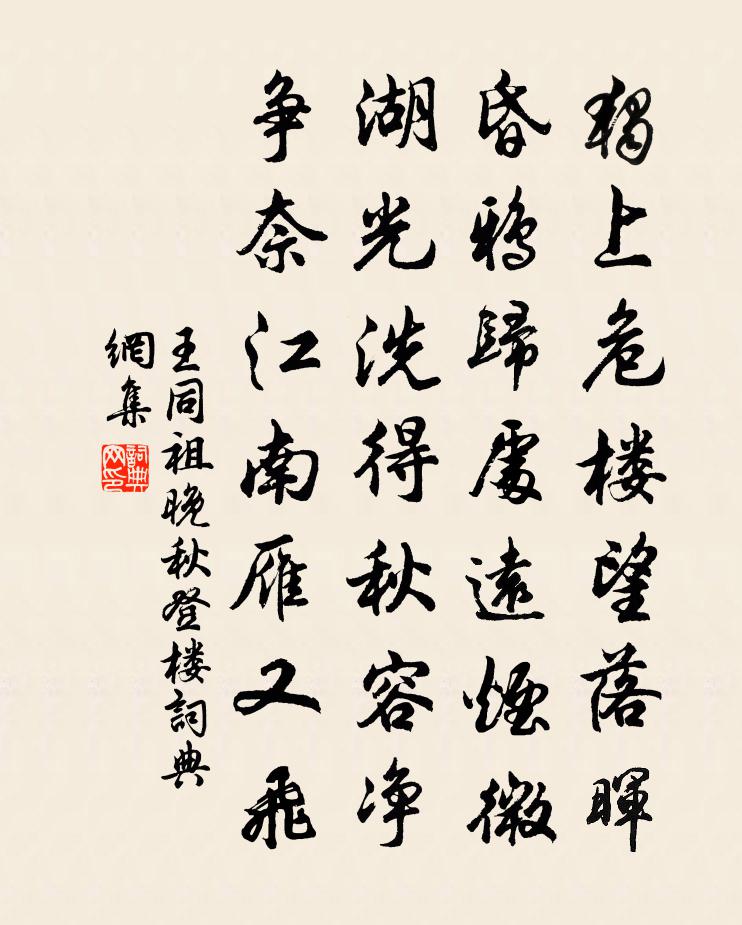 獨上危楼望落暉
昏鴉歸處遠煙微
湖光洗得秋容净
争奈江南雁又飛
王同祖晚秋登楼詞典
網集
詞典
网印